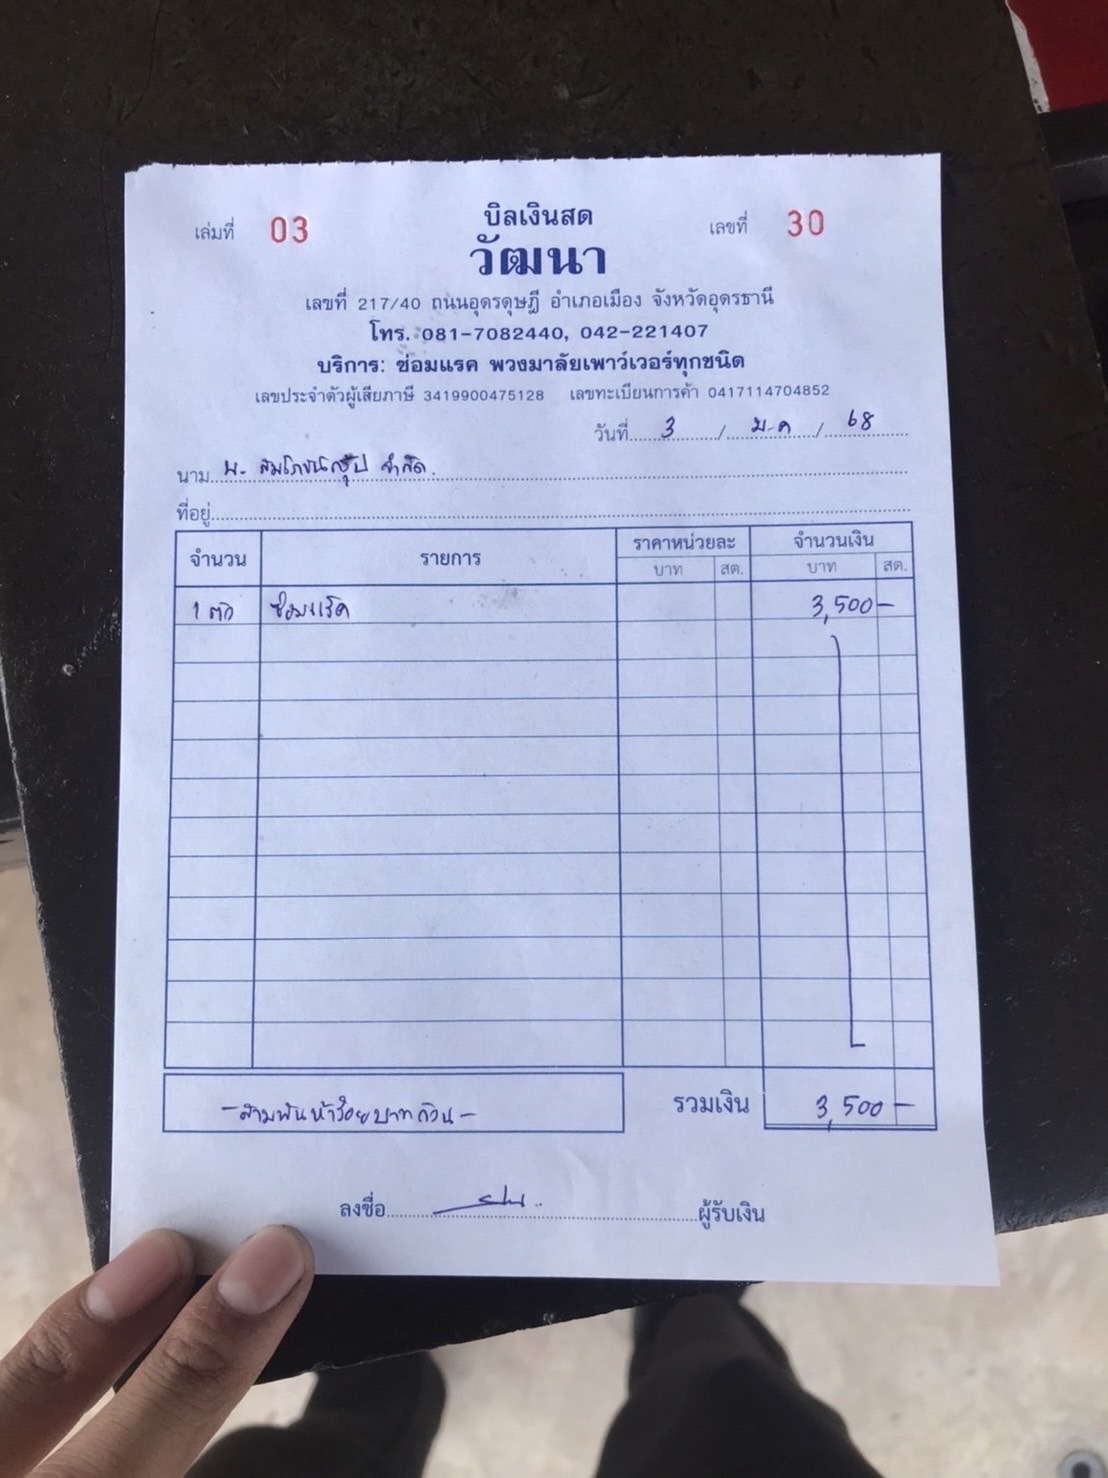 เล่มที่ 03 บิลเงินสด เลขที่ 30
วัฒนา
เลขที่ 217/40 ถนนอุดรดุษฎี อำเภอเมือง จังหวัดอุดรธานี
โทร. 081-7082440, 042-221407
บริการ: ซ่อมแรค พวงมาลัยเพาว์เวอร์ทุกชนิด
เลขประจำตัวผู้เสียภาษี 3419900475128 เลขทะเบียนการค้า 0417114704852
วันที่ 3 / ม.ค / 68
นาม จำกัด.
ที่อยู่
จำนวน รายการ ราคาหน่วยละ จำนวนเงิน
บาท สต. บาท สต.
1 ตัว ซ่อมแร็ค 3,500 –
- สามพันห้าร้อยบาทถ้วน - รวมเงิน 3,500 –
ลงชื่อ ผู้รับเงิน